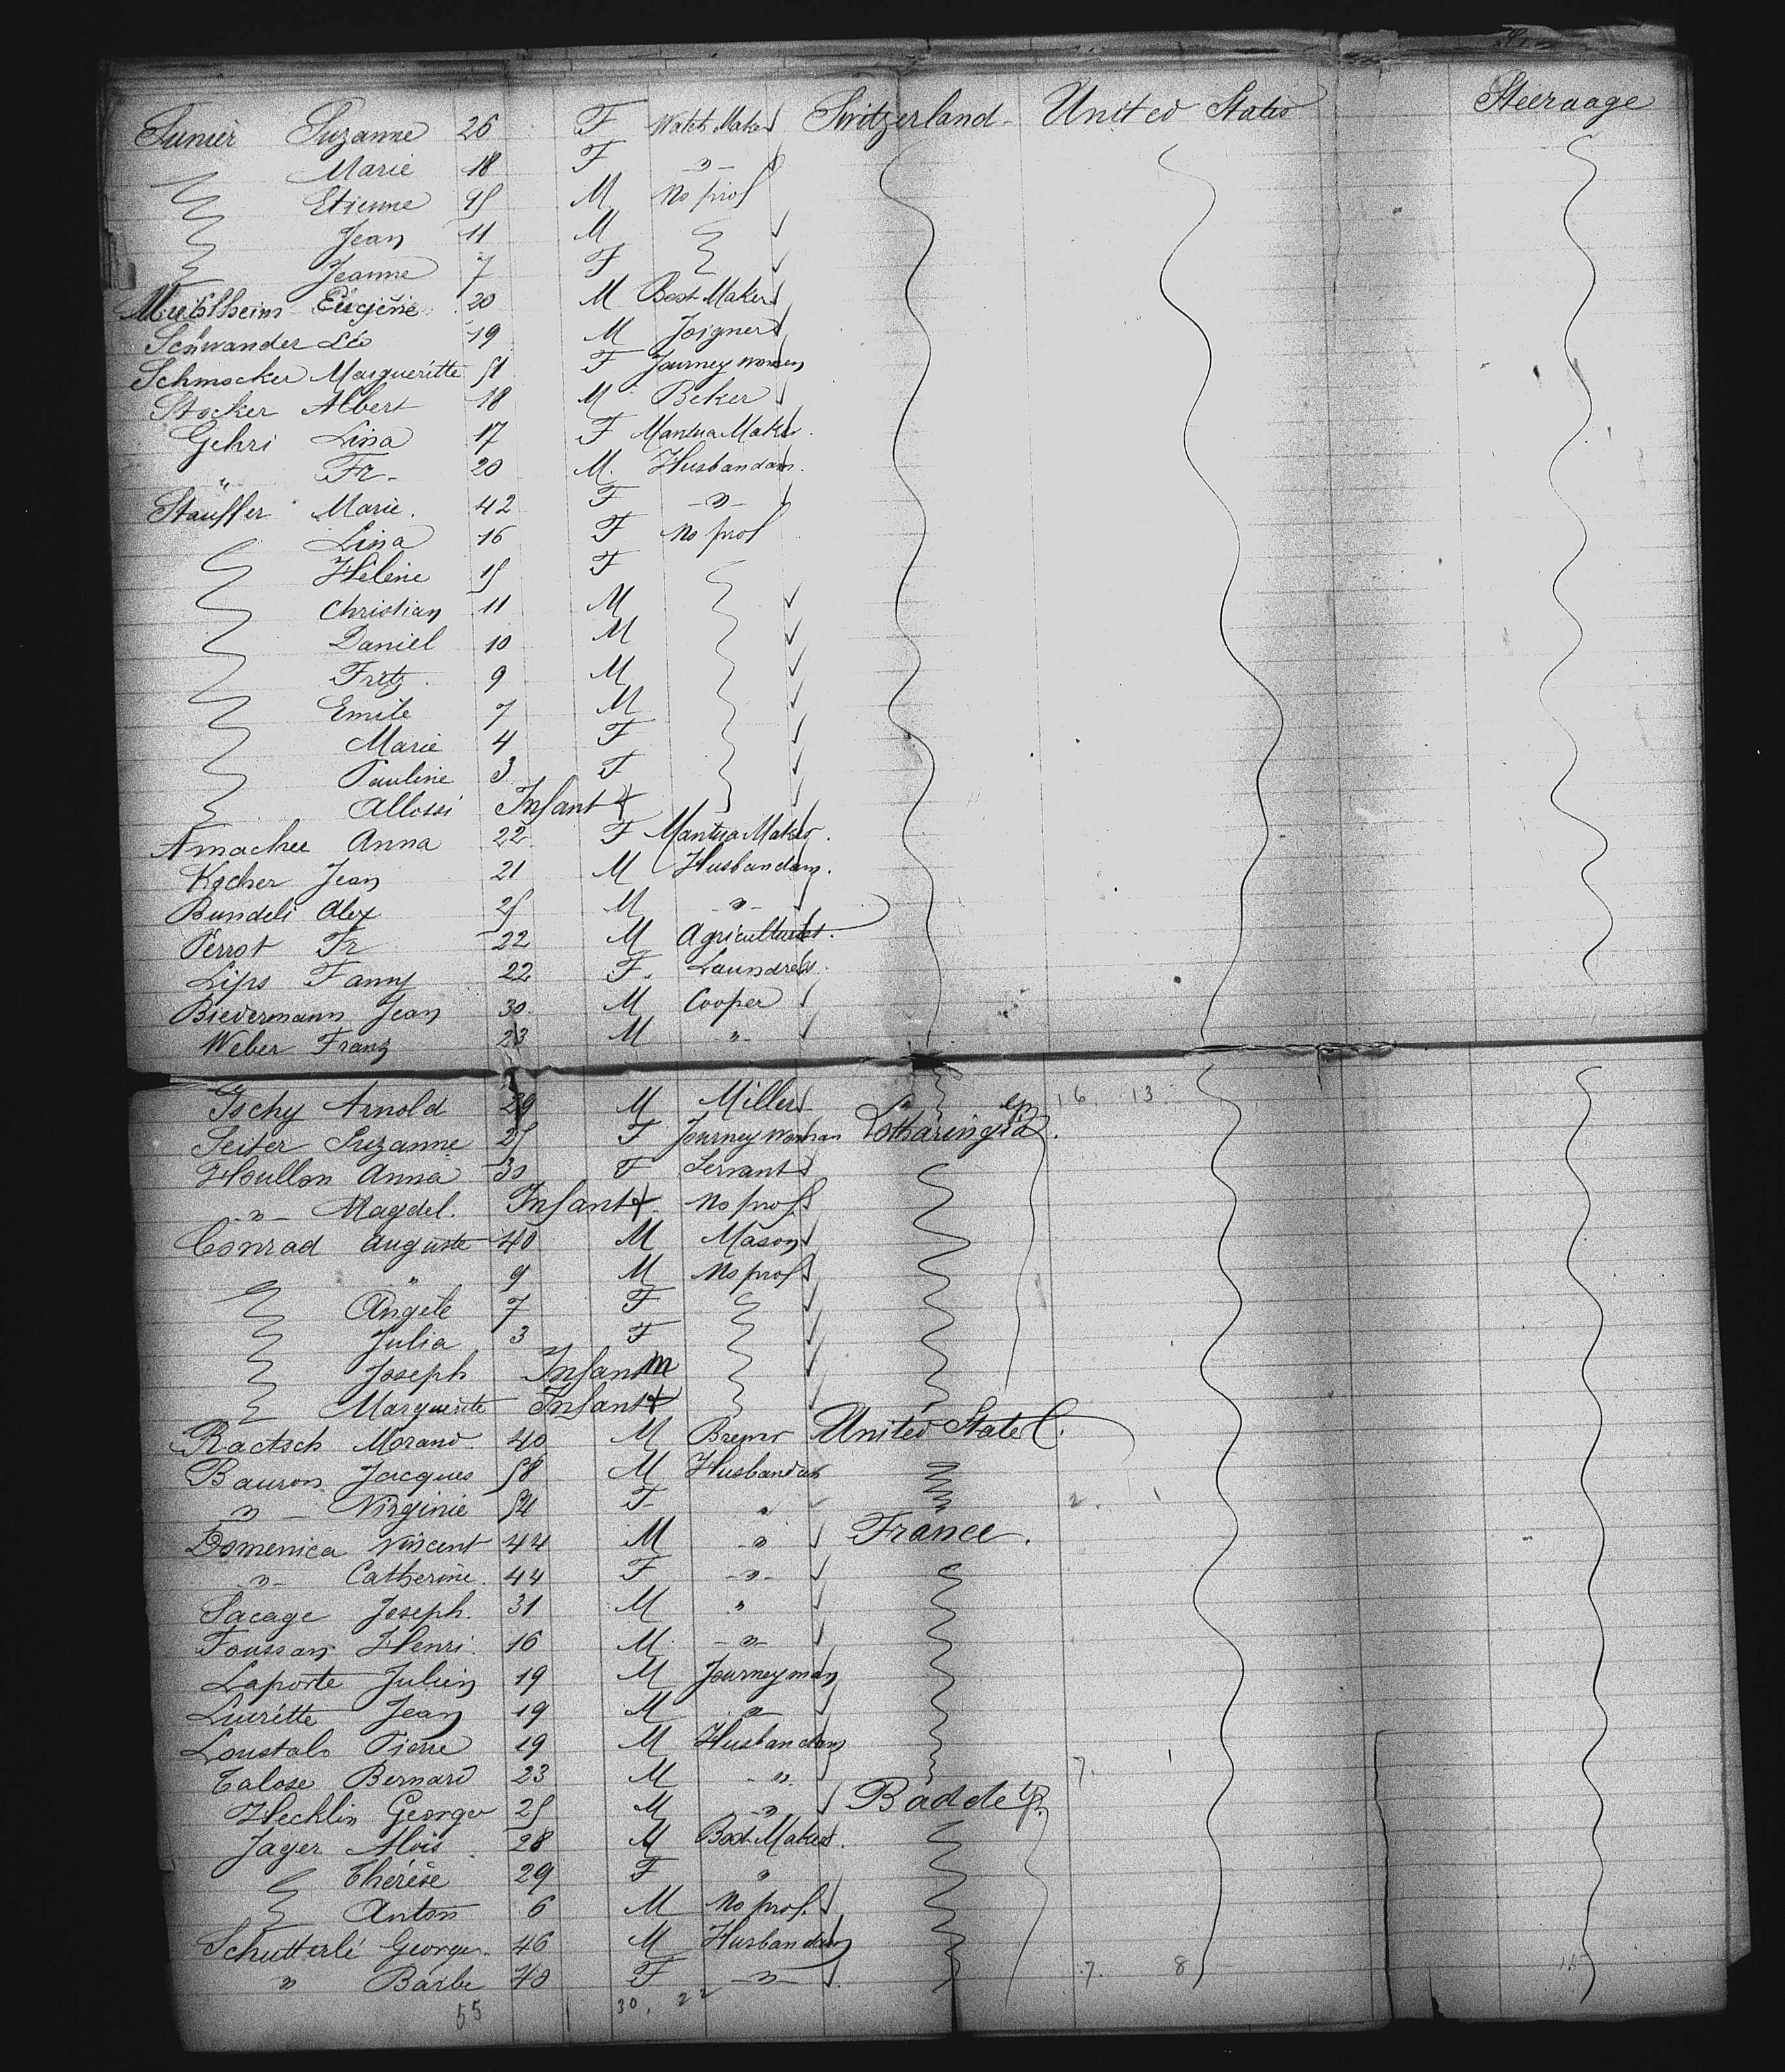 Junier Suzanne 26 F Watch Maker Switzerland United States Steeraage
Marie 18 F -"-
Etienne 15 M No prof
Jean 11 M
Jeanne 7 F
Mühlheim Eugène 20 M Boot Maker
Schwander Léo 19 M Joigner
Schmocker Margueritte 51 F Journey women
Stocker Albert 18 M Beker
Gehri Lina 17 F Mantua Maker
" Fr. 20 M Husbandam.
Stauffer Marie. 42 F -"-
Lina 16 F No prof
Hélène 15 F
Christian 11 M
Daniel 10 M
Fritz 9 M
Emile 7 M
Marie 4 F
Pauline 3 F
Infant
Amacher Anna 22 F Mantua Maker.
Kocher Jean 21 M Husbandam.
Bundeli Alex 25 M -"-
Perrot Fr 22 M Agriculturist.
Lips Fanny 22 F. Laundress
Biedermann Jean 30 M Cooper
Weber Franz 23 M -"-
Tschy Arnold 29 M Miller 16. 13
Seiter Suzanne 25 F Journey woman Lotharingia.
Houllon Anna 30 F Servant
-"- Magdel. Infant No prof
Conrad Auguste 40 M Mason
" 9 M No prof
Angèle 7 F
Julia 3 F
Joseph Infant m
Marguerite Infant
Ractsch Morand. 40 M Brewer United State
Bauron Jacques 58 M Husbandam
-"- Virginie 54 F " 2. 1
Domenica Vincent 44 M -"- France.
-"- Catherine. 44 F -"-
Sacage Joseph. 31 M "
Toussan Henri. 16 M -"-
Laporte Julien 19 M Journeyman
Jean 19 M -"-
Loustalo Pierre 19 M Husbandam
Talose Bernard 23 M -"- 7. 1
Hecklin George 25 M -"- Badde
Jager Aloïs 28 M Boot Maker.
Thérèse 29 F "
Anton 6 M No prof.
Schutterlé Georges. 46 M Husbandam
" Barbe 40 F -"- 7. 8
55 30. 22